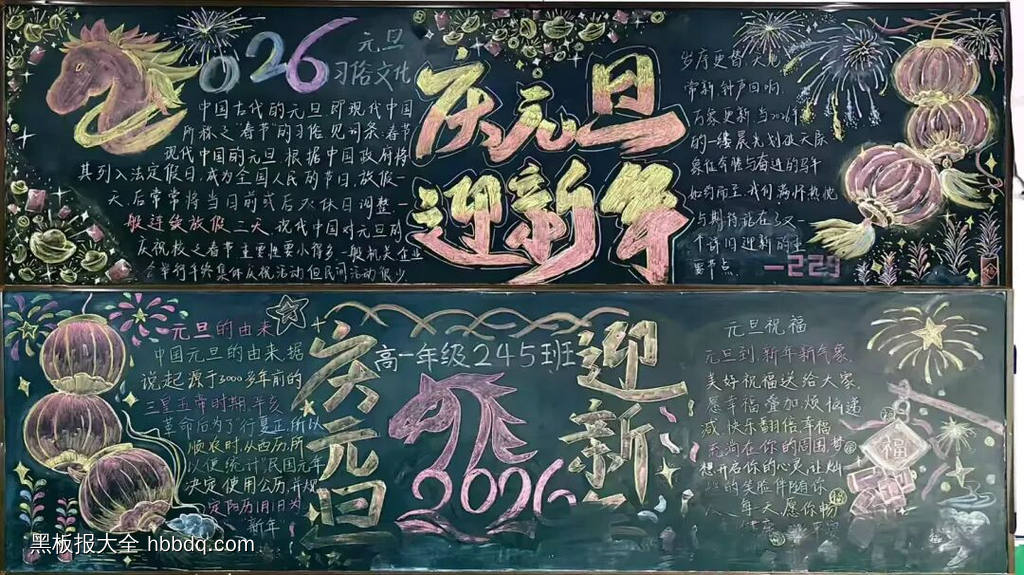 2026
元旦
习俗文化
中国古代的元旦即现代中国
所称之"春节"的习俗见词条:春节
现代中国的元旦,根据中国政府将
其列入法定假日,成为全国人民的节日.放假一
天,后常常将当日前或后双休日调整,一
般连续放假三天,现代中国对元旦的
庆祝较之春节重要性要小得多.一般机关企业
会举行年终集体庆祝活动但民间活动很少
庆元旦
迎新年
岁序更替天地
常新 钟声回响
万象更新 当2026年
的一缕晨光划破天际
象征奔腾与奋进的马年
如约而至.我们满怀热忱
与期待站在这又一
个诗日迎新的重
要节点
—229
元旦的由来
中国元旦的由来,据
说起源于3000多年前的
三皇五帝时期.辛亥
革命后为了"行夏正,所以
顺农时,从西历,所
以便统计"民国元年
决定使用公历,并规
定阳历1月1日为
新年
庆元旦
高一年级245班
2026
迎新
元旦祝福
元旦到,新年新气象,
美好祝福送给大家
愿幸福叠加烦恼递
减,快乐翻倍幸福
充满在你的周围,梦
想开启你的心灵,让灿
烂的笑脸伴随你
每天.愿你畅
福
黑板报大全 hbbdq.com